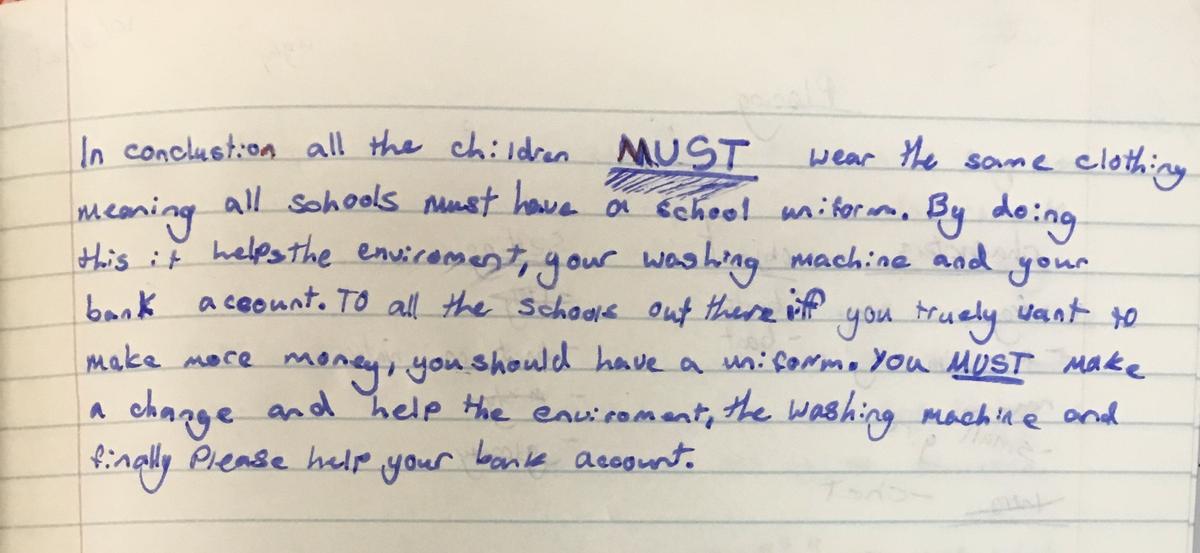 In conclustion all the children MUST wear the same clothing
meaning all schools must have a school uniform. By doing
this it helps the enviroment, your washing machine and your
bank account. TO all the schools out there iff you truely want to
make more money, you should have a uniform. You MUST make
a change and help the enviroment, the washing machine and
finally Please help your bank account.